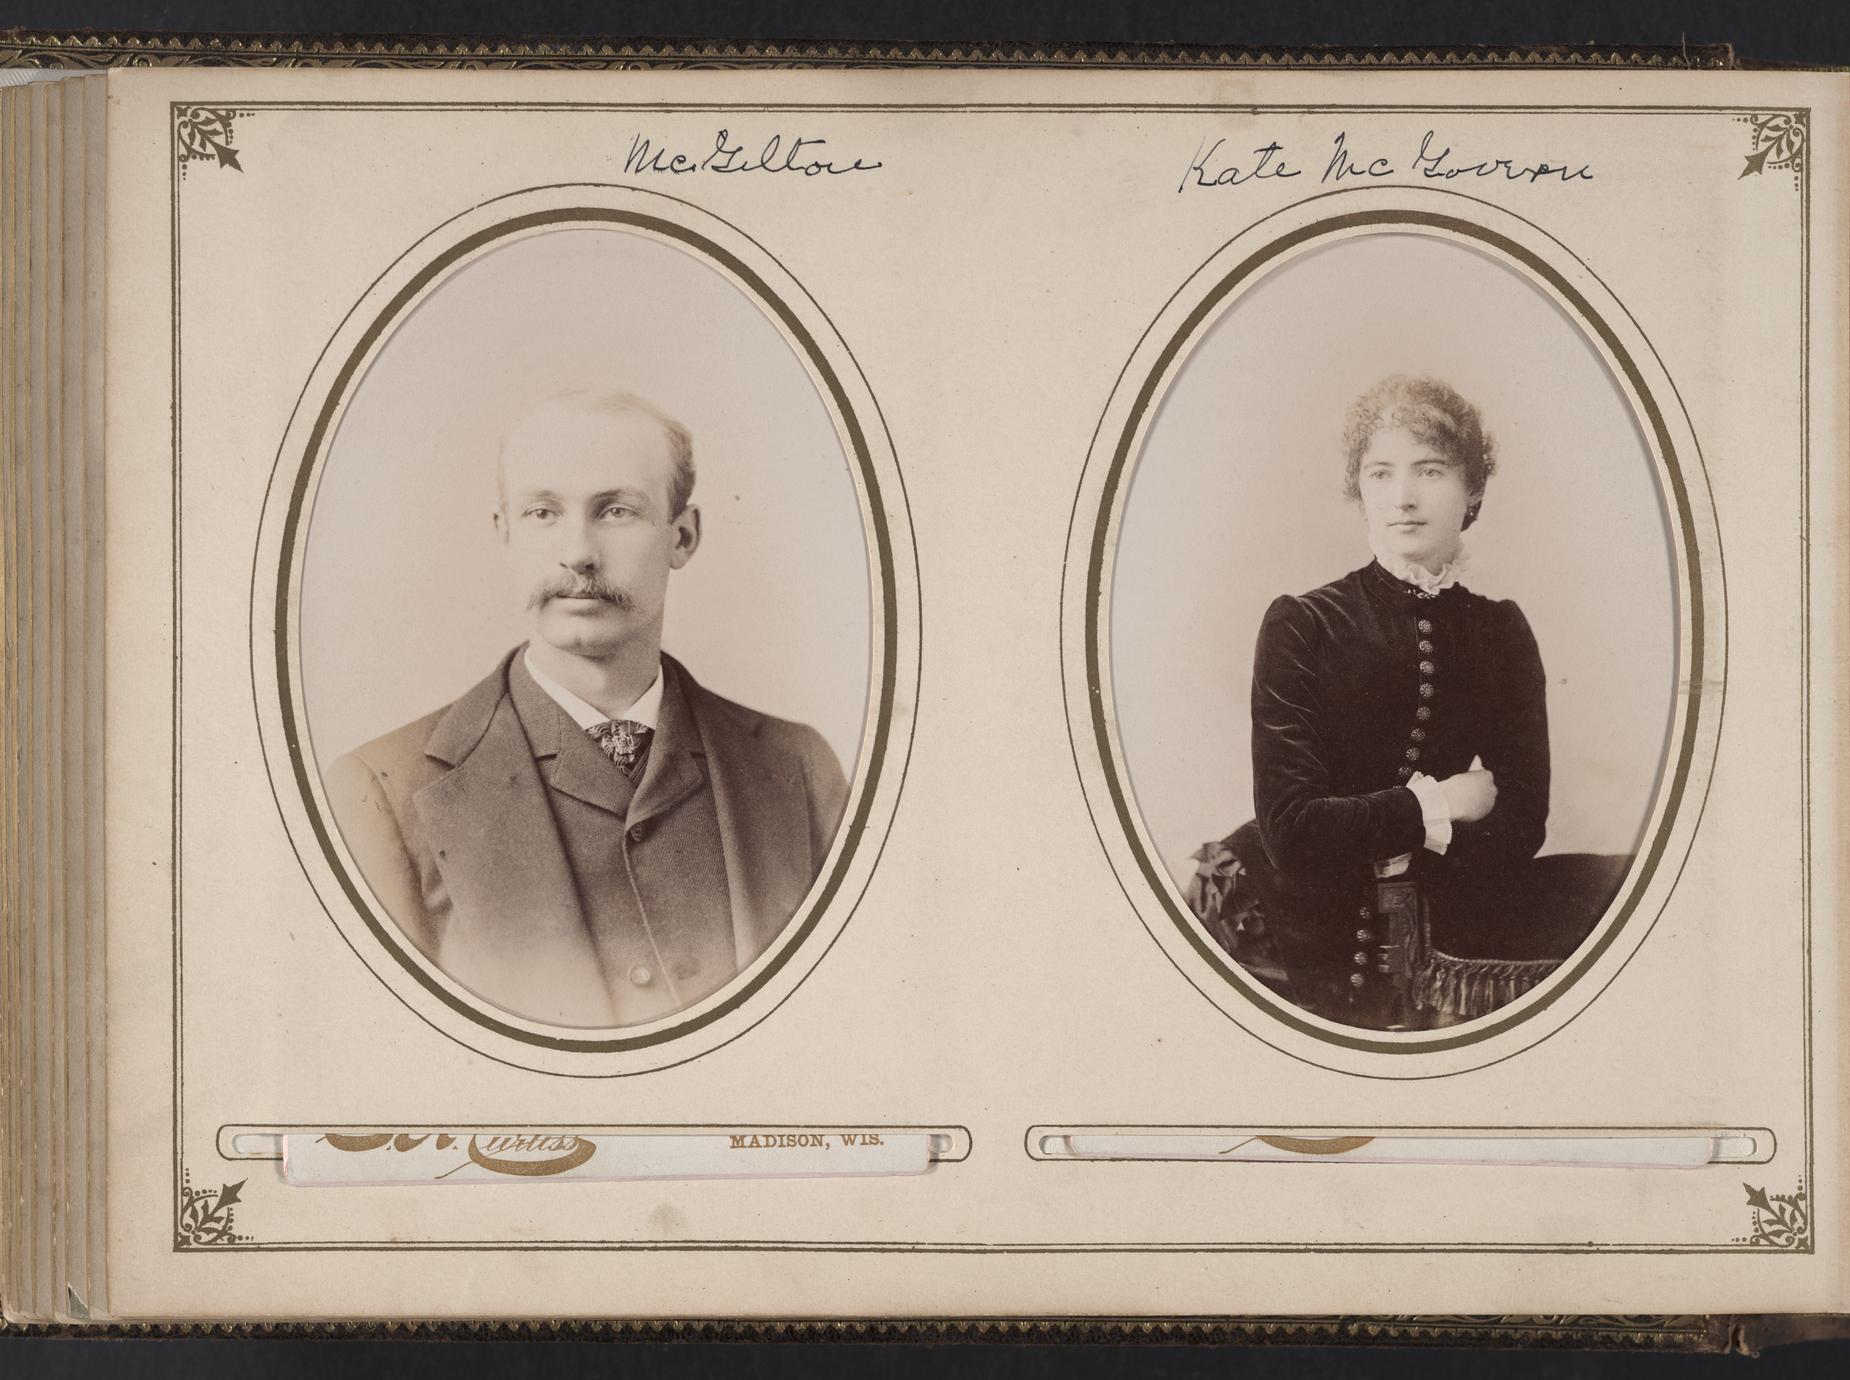 McGilton
Kate McGovern
Curtiss
MADISON, WIS.